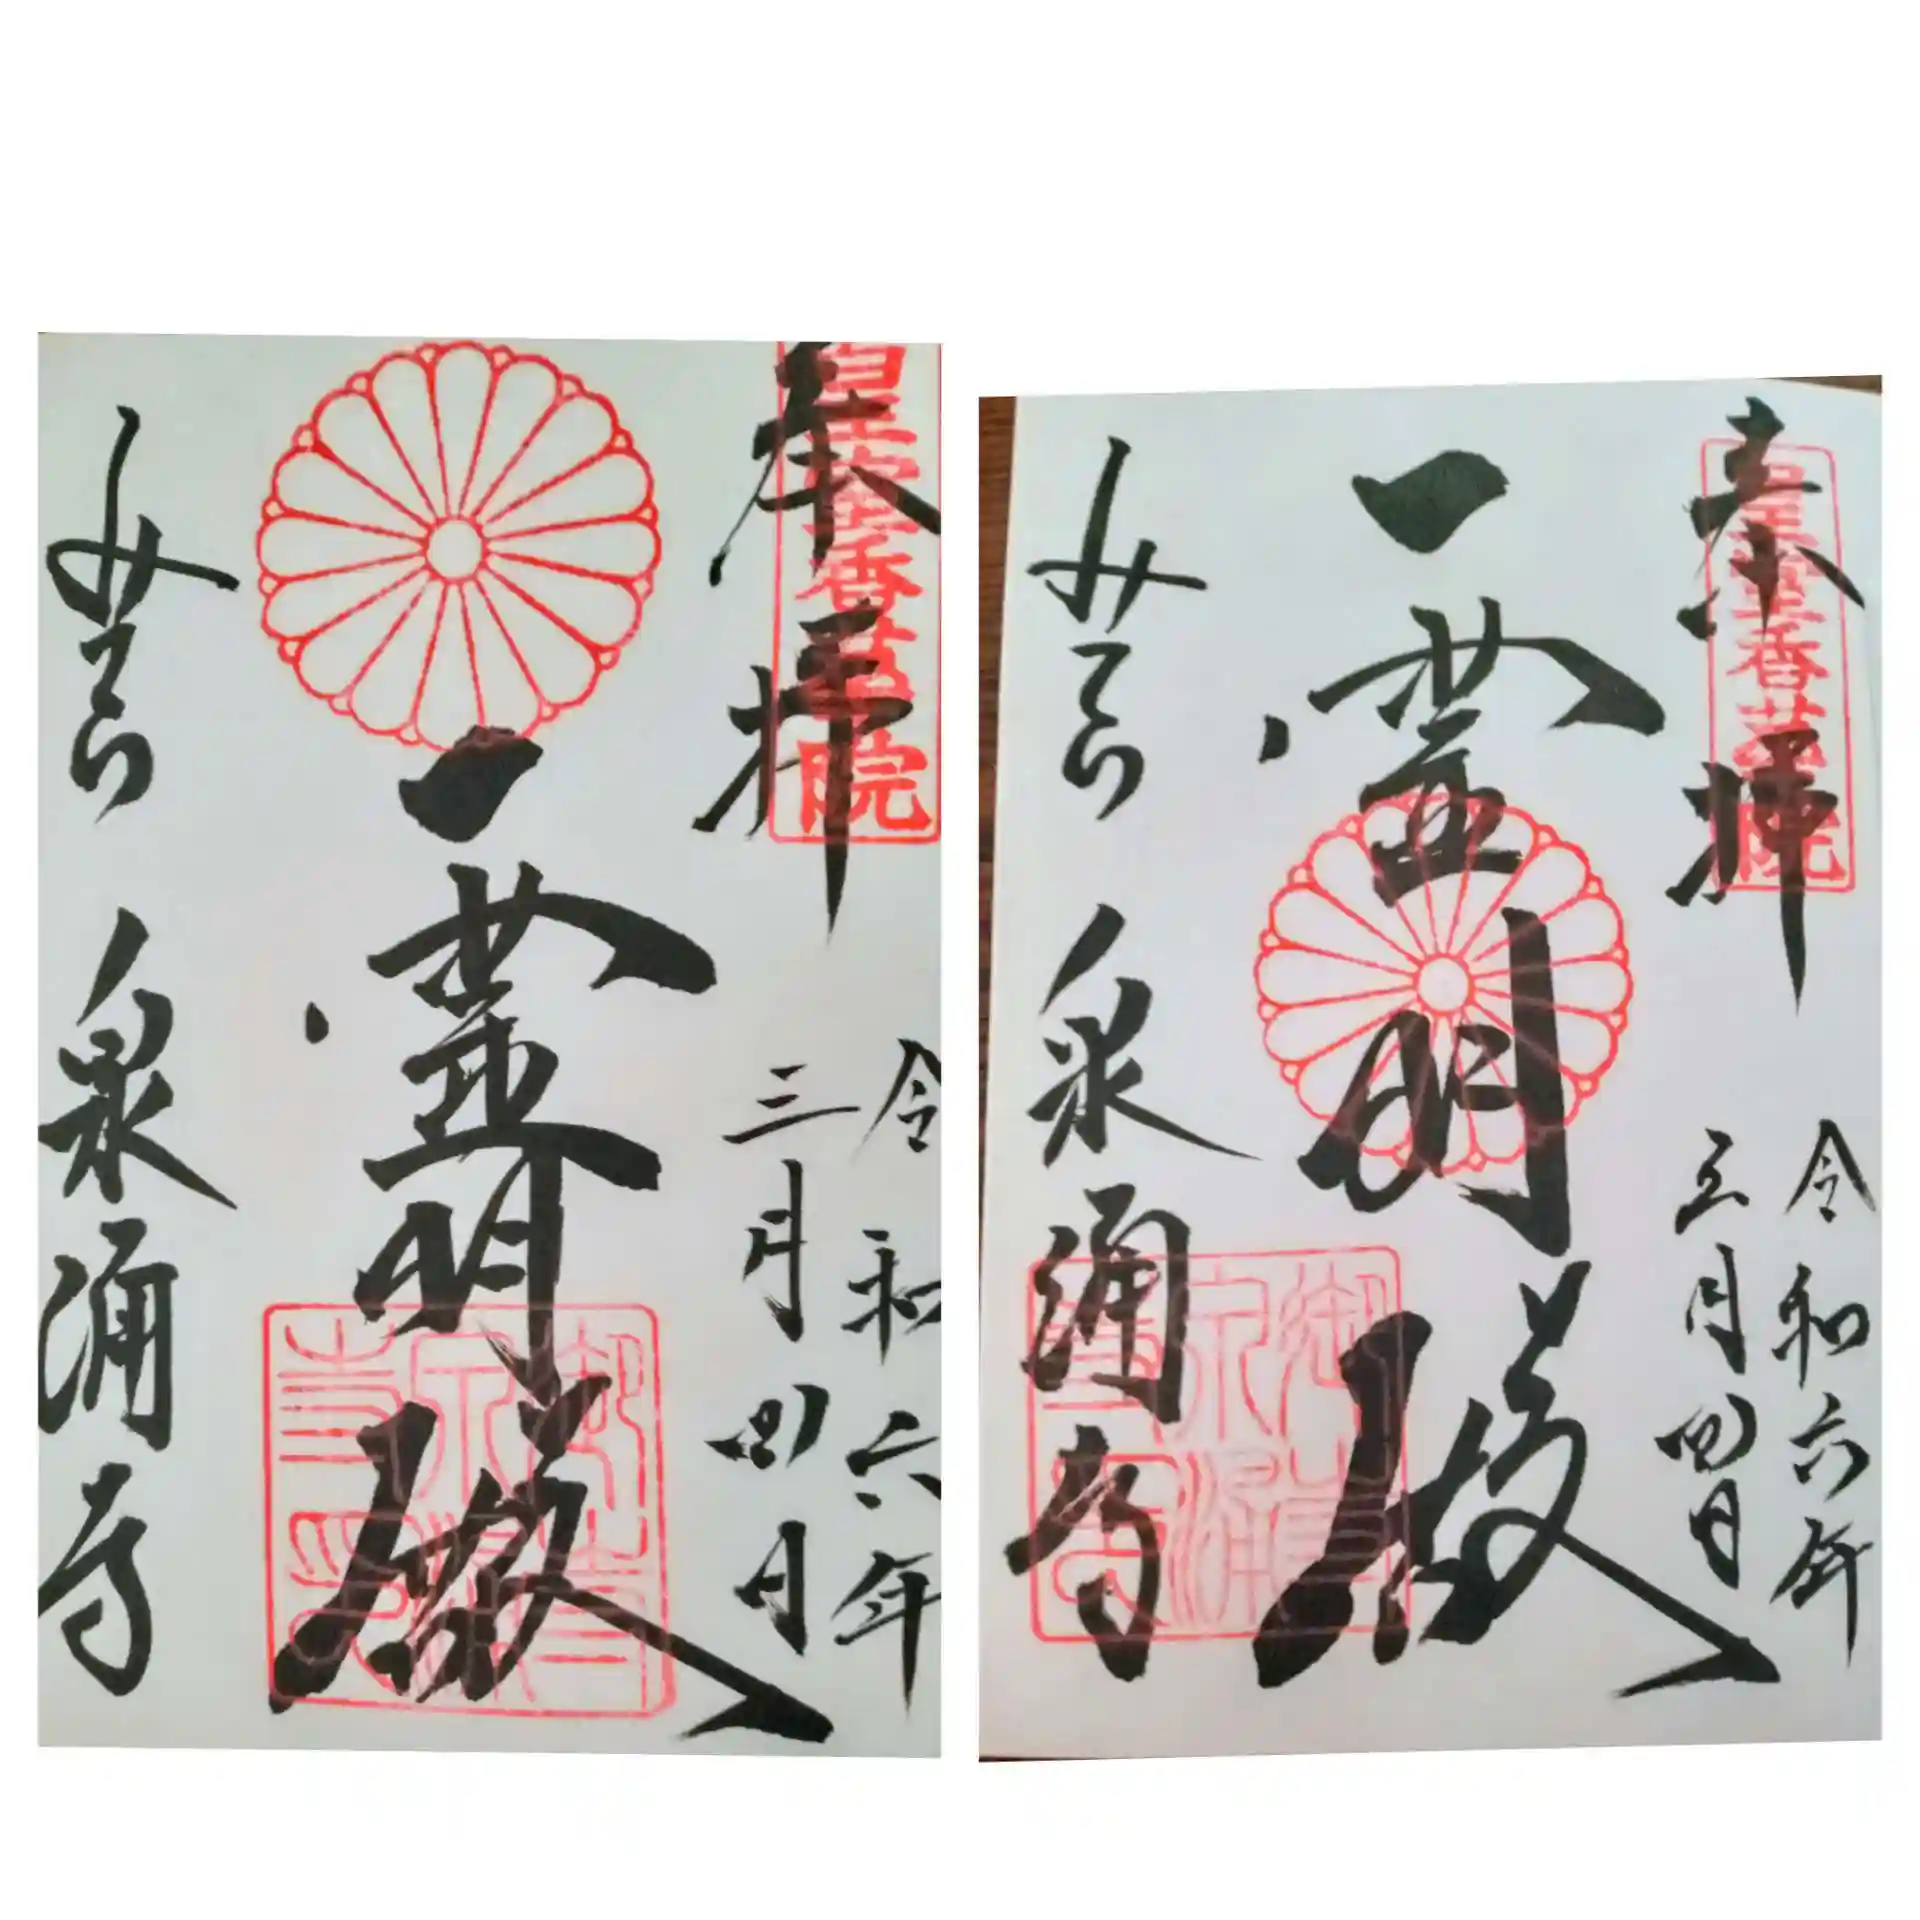 奉拝
皇室香華院
令和六年
三月四日
霊明殿
みてら
泉涌寺
奉拝
皇室香華院
令和六年
三月四日
霊明殿
みてら
泉涌寺